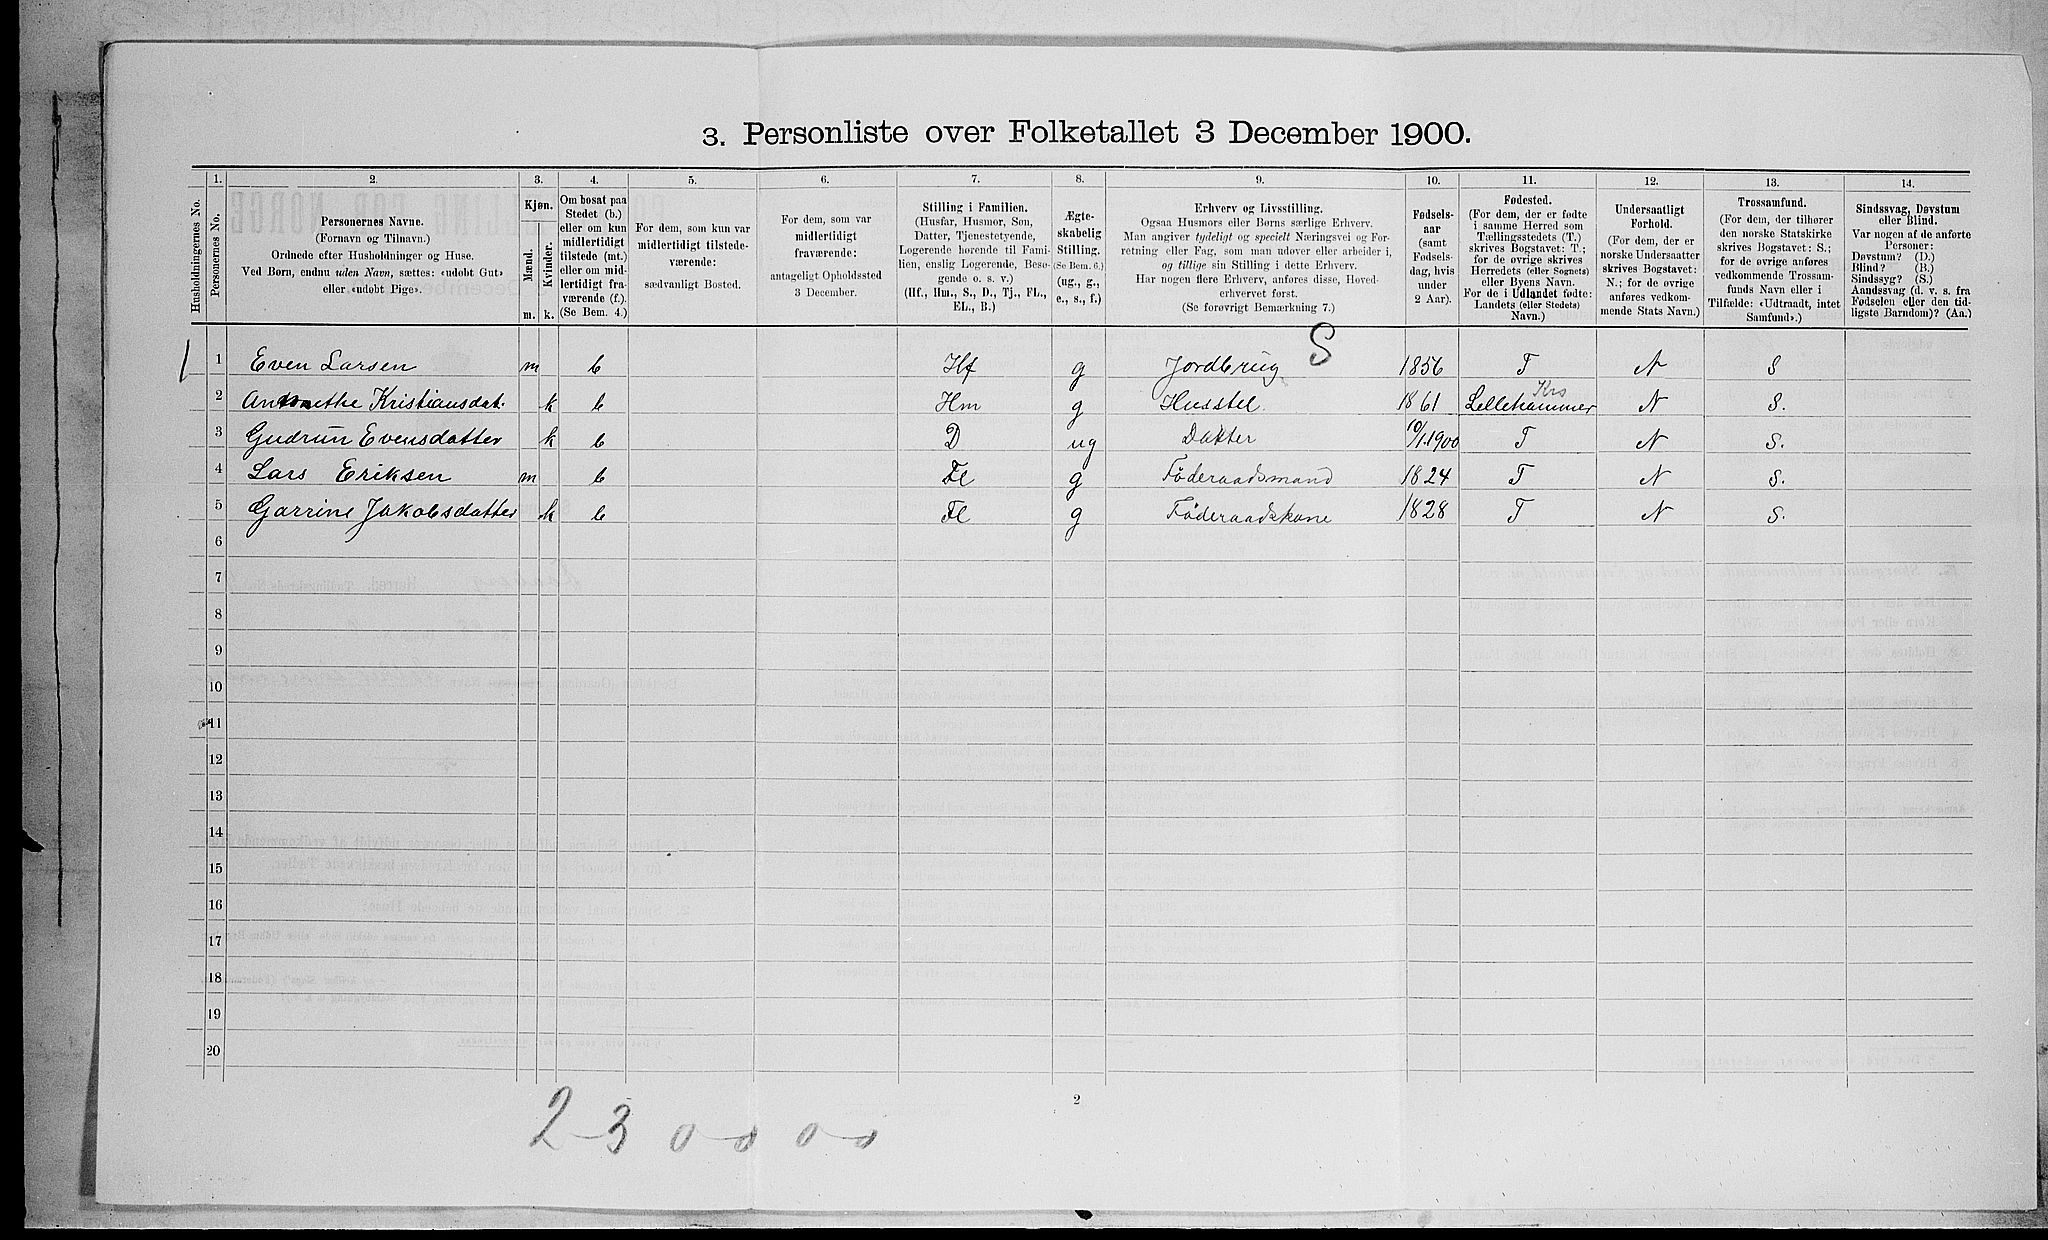 3. Personliste over Folketallet 3 December 1900.
1. 2. 3. 4. 5. 6. 7. 8. 9. 10. 11. 12. 13. 14.
Husholdningernes No.
Personernes No.
Personernes Navne.
(Fornavn og Tilnavn.)
Ordnede efter Husholdninger og Huse.
Ved Børn, endnu uden Navn, sættes: «udøbt Gut»
eller «udøbt Pige».
Kjøn.
Mænd.
Kvinder.
m. k.
Om bosat paa
Stedet (b.)
eller om kun
midlertidigt
tilstede (mt.)
eller om mid-
lertidigt fra-
værende (f.).
(Se Bem. 4.)
For dem, som kun var
midlertidigt tilstede-
værende:
sædvanligt Bosted.
For dem, som var
midlertidigt
fraværende:
antageligt Opholdssted
3 December.
Stilling i Familien.
(Husfar, Husmor, Søn,
Datter, Tjenestetyende,
Logerende hørende til Fami-
lien, enslig Logerende, Besø-
gende o. s. v.)
(Hf., Hm., S., D., Tj., FL.,
EL., B.)
Ægte-
skabelig
Stilling.
(Se Bem. 6.)
(ug., g.,
e., s., f.)
Erhverv og Livsstilling.
Ogsaa Husmors eller Børns særlige Erhverv.
Man angiver tydeligt og specielt Næringsvei og For-
retning eller Fag, som man udøver eller arbeider i,
og tillige sin Stilling i dette Erhverv.
Har nogen flere Erhverv, anføres disse, Hoved-
erhvervet først.
(Se forøvrigt Bemærkning 7.)
Fødsels-
aar
(samt
Fødsels-
dag, hvis
under
2 Aar).
Fødested.
(For dem, der er fødte
i samme Herred som
Tællingsstedets (T.)
skrives Bogstavet: T.;
for de øvrige skrives
Herredets (eller Sognets)
eller Byens Navn.
For de i Udlandet fødte:
Landets (eller Stedets)
Navn.)
Undersaatligt
Forhold.
(For dem, der er
norske Undersaatter
skrives Bogstavet:
N.; for de øvrige
anføres vedkom-
mende Stats Navn.)
Trossamfund.
(For dem, der tilhører
den norske Statskirke
skrives Bogstavet: S.;
for de øvrige anføres
vedkommende Trossam-
funds Navn eller i
Tilfælde: «Udtraadt, intet
Samfund».)
Sindssvag, Døvstum
eller Blind.
Var nogen af de anførte
Personer:
Døvstum? (D.)
Blind? (B.)
Sindssyg? (S.)
Aandssvag (d. v. s. fra
Fødselen eller den tid-
ligste Barndom)? (Aa.)
S
1 1 Even Larsen m b Hf g Jordbrug 1856 T N S
Krs
2 Annethe Kristiansdat. k b Hm g Husstel. 1861 Lillehammer N S.
3 Gudrun Evensdatter k b D ug Datter 10/1.1900 T N S.
4 Lars Eriksen m b Fl g Föderaadsmand 1824 T N S.
5 Gorrine Jakobsdatter k b Fl g Föderaadskone 1828 T N S.
6
7
8
9
10
11
12
13
14
15
16
17
18
19
20
2
2-3 0-0 0-0